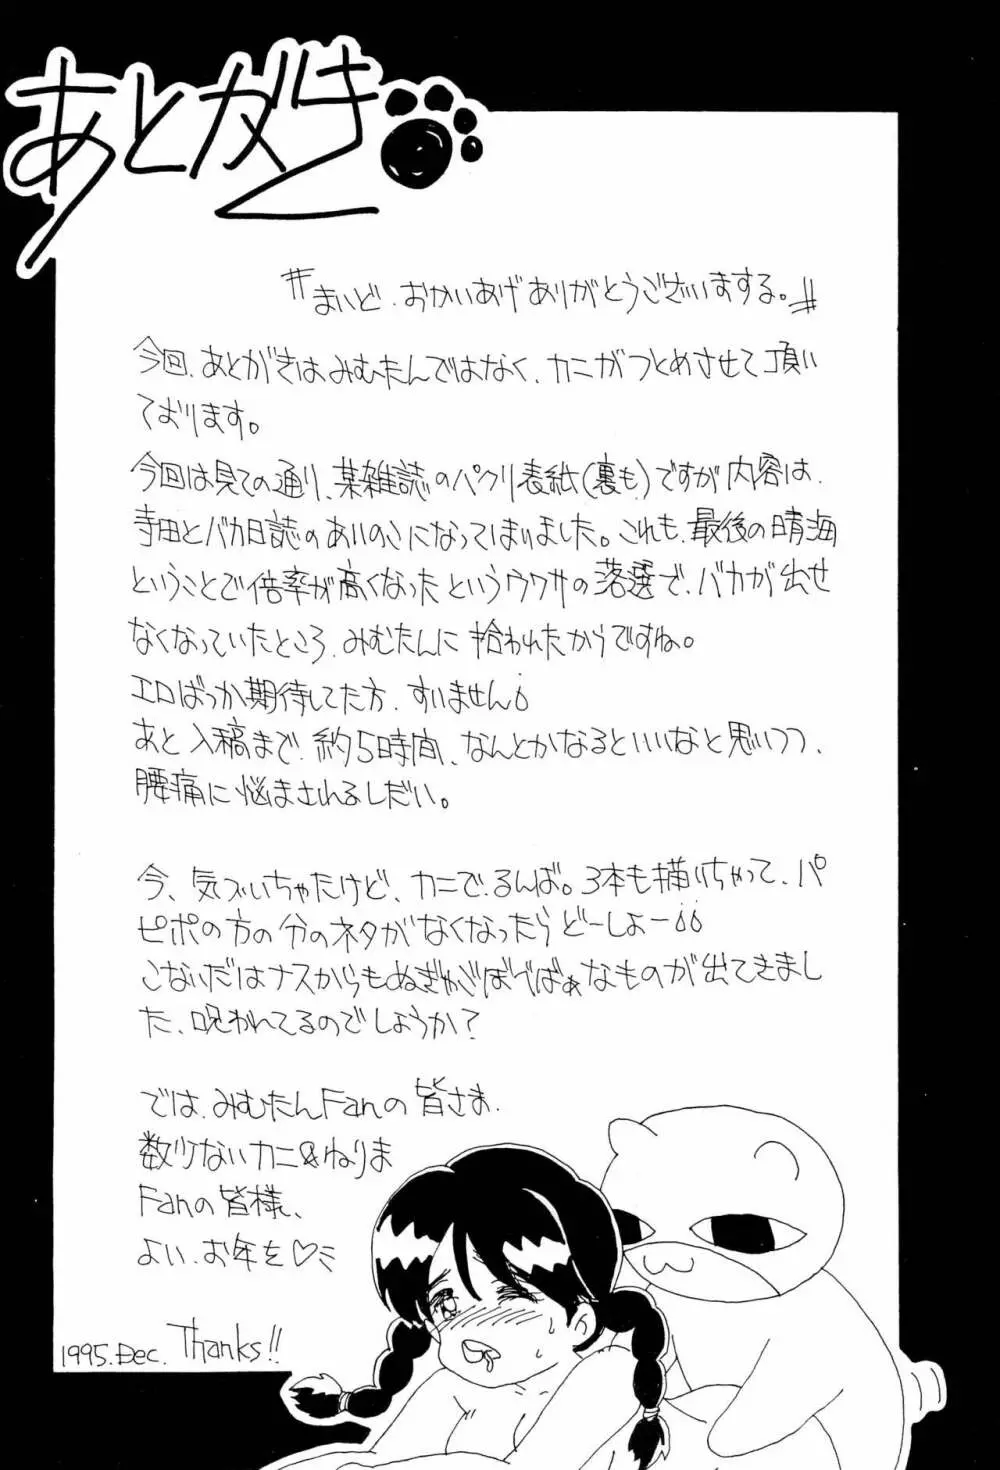 あとがき
〃まいど、おかいあげありがとうございまする。〃
今回、あとがきは、みむたんではなく、カニがつとめさせて頂い
ております。
今回は見ての通り、某雑誌のパクリ表紙(裏も)ですが内容は、
寺田とバカ日誌のあいのこになってしまいました。これも、最後の晴海
ということで倍率が高くなったというウワサの落選で、バカが出せ
なくなっていたところ、みむたんに拾われたからですね。
エロばっか期待してた方、すいません
あと入稿まで、約5時間、なんとかなるといいなと思いつつ、
腰痛に悩まされるしだい。
今、気づいちゃたけど、カニで、るんば。3本も描いちゃって、パ
ピポの方の分のネタがなくなったらどーしよー
こないだはナスからもなものが出てきまし
た、呪われてるのでしょうか?
では、みむたんFanの皆さま、
数少ないカニ&ねりま
Fanの皆様、
よい、お年を♡ミ
1995.Dec. Thanks!!